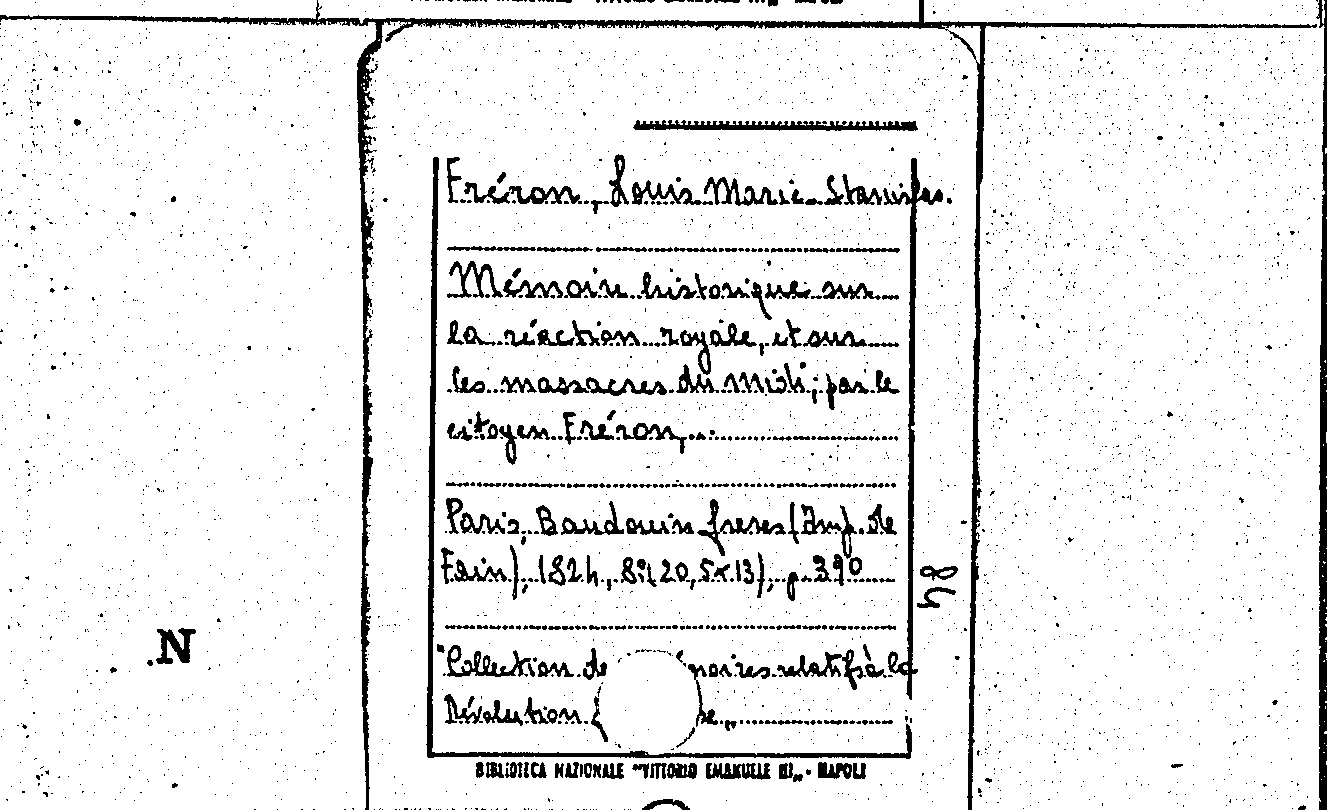 Fréron, Louis Marie Stanislas.
Mémoire historique sur
la réaction royale, et sur
les massacres du midi; par le
citoyen Fréron,...
Paris, Baudouin freres (Imp. de
Fain), 1824, 8º (20,5x13), p. 390
84
N
"Collection de moires relatifs à la
Révolution se„
BIBLIOTECA NAZIONALE "VITTORIO EMANUELE III„ - NAPOLI